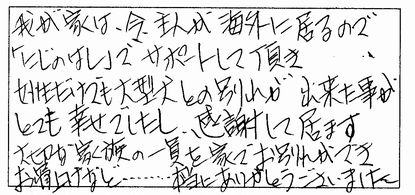 我が家は、今、主人が海外に居るので
「にじのはし」でサポートして頂き
女性だけでも大型犬との別れが出来た事が
とても幸せでしたし、感謝して居ます
大切な家族の一員を家でお別れができ
お骨上げかと……本当にありがとうございました